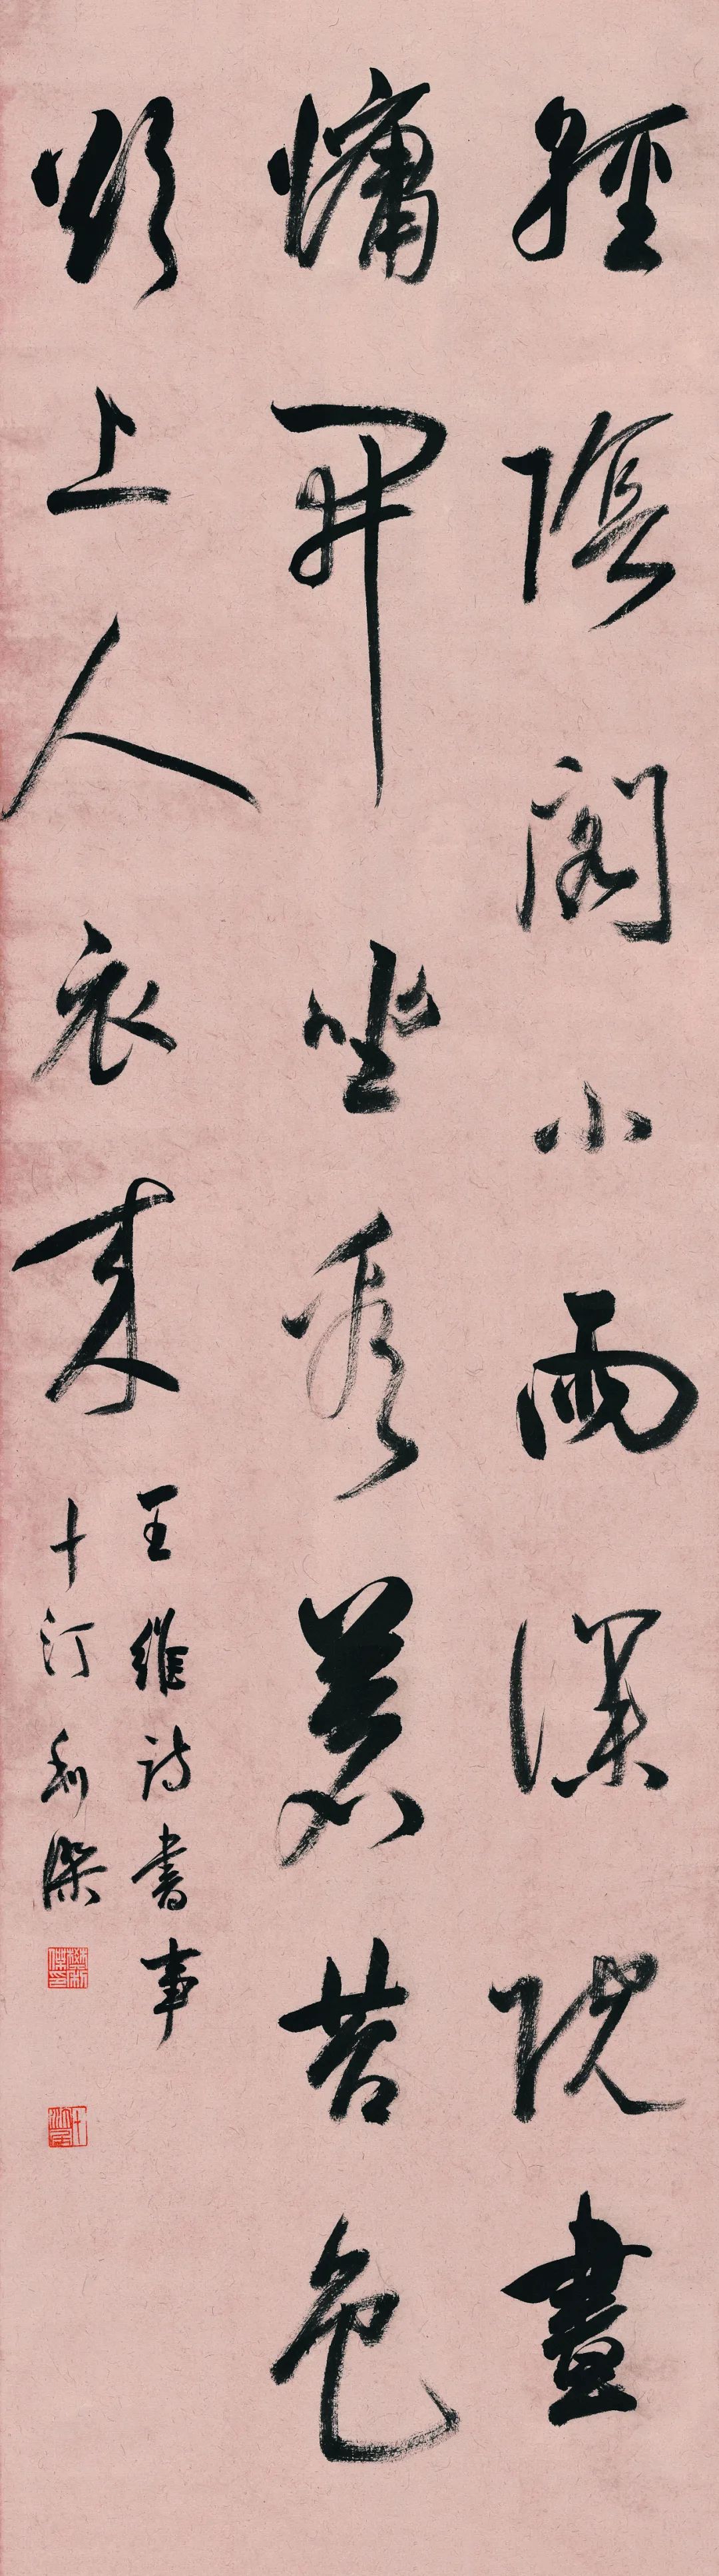 輕陰閣小雨深院晝
慵開坐看蒼苔色
欲上人衣來
王維詩書事
十汀利傑